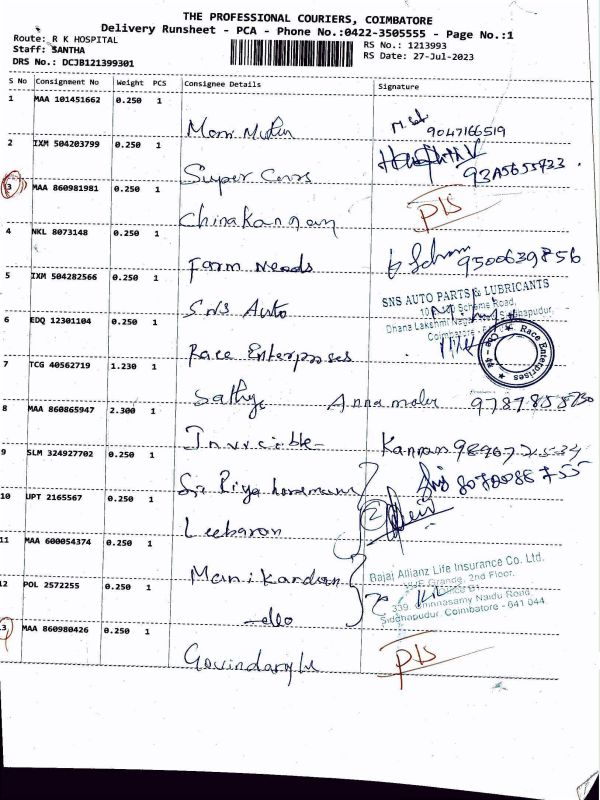 THE PROFESSIONAL COURIERS, COIMBATORE
Delivery Runsheet - PCA - Phone No.:0422-3505555 - Page No.:1
Route: R K HOSPITAL
Staff: SANTHA
DRS No.: DCJB121399301
RS No.: 1213993
RS Date: 27-Jul-2023
S No Consignment No Weight PCS Consignee Details Signature
1 MAA 101451662 0.250 1
9047166519
2 IXM 504203799 0.250 1
Super Cars
3 MAA 860981981 0.250 1
PIS
4 NKL 8073148 0.250 1
Farm Needs 9500639856
5 IXM 504282566 0.250 1
SNS Auto
SNS AUTO PARTS & LUBRICANTS
Scheme Road,
Dhana Lakshmi
6 EDQ 12301104 0.250 1
Race Enterprises
Race Enterprises
7 TCG 40562719 1.230 1
Sathya Annamalai
8 MAA 860865947 2.300 1
Invicible Kannan
9 SLM 324927702 0.250 1
10 UPT 2165567 0.250 1
Leebaron
11 MAA 600054374 0.250 1
Manikandan
Bajaj Allianz Life Insurance Co. Ltd.
Grande, 2nd Floor,
12 POL 2572255 0.250 1
-do
339, Chinnasamy Naidu Road
Siddhapudur, Coimbatore - 641 044.
13 MAA 860980426 0.250 1
Govindarajlu PIS